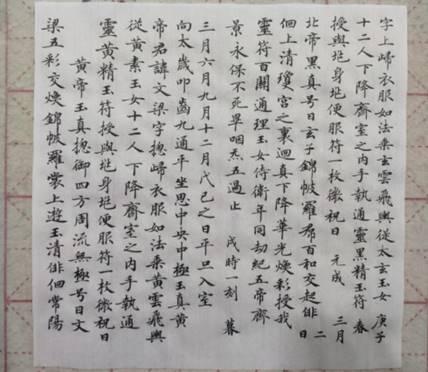 字上歸衣服如法乘玄雲飛輿從太玄玉女 庚子
十二人下降齋室之内手執通靈黑精玉符 春
授與兆身兆便服符一枚微祝曰 元成 三月
北帝黑真号曰玄子錦帔羅裙百和交起徘 二日
徊上清瓊宮之裏迴真下降華光煥彩授我
靈符百關通理玉女侍衛年同劫紀五帝齊
景永保不死畢咽炁五過止 戌時一刻 暮
三月六月九月十二月戊己之日平旦入室
向太歲叩齒九通平坐思中央中極玉真黄
帝君諱文梁字揔歸衣服如法乘黄雲飛輿
從黄素玉女十二人下降齋室之内手執通
靈黄精玉符授與兆身兆便服符一枚微祝曰
黄帝玉真揔御四方周流無極号曰文
梁五彩交煥錦帔羅裳上遊玉清徘徊常陽